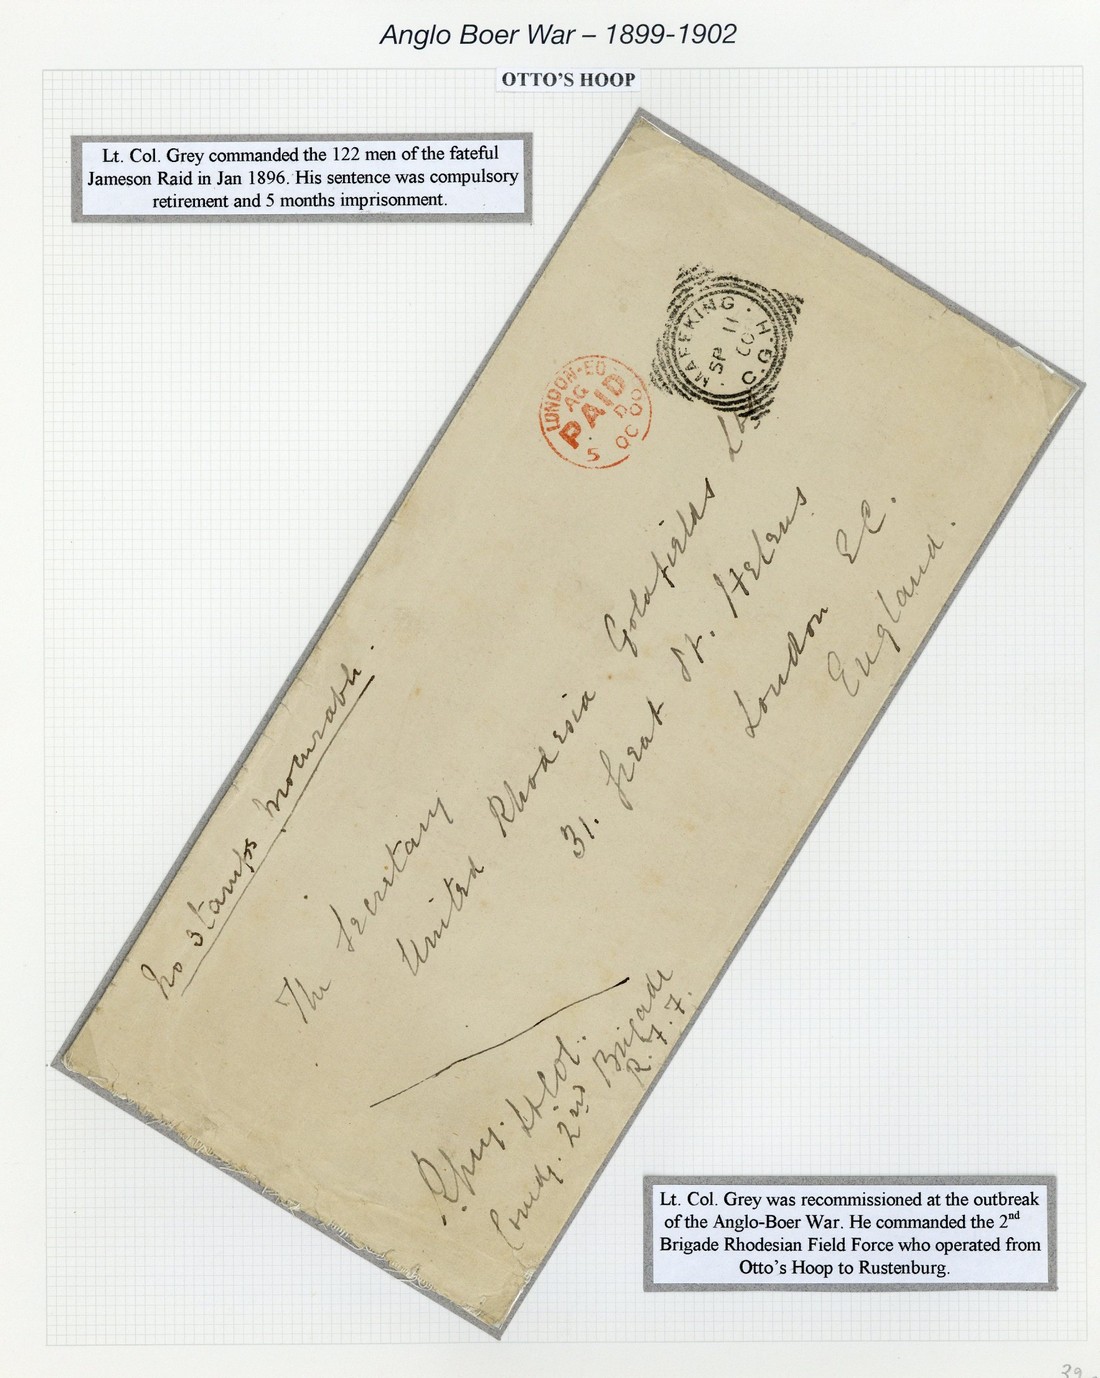 Anglo Boer War – 1899-1902
OTTO'S HOOP
Lt. Col. Grey commanded the 122 men of the fateful
Jameson Raid in Jan 1896. His sentence was compulsory
retirement and 5 months imprisonment.
MAFEKING · C.G.H.
SP 11
00
LONDON-EC
AG
PAID
D
5 OC 00
No Stamps procurable.
The Secretary
United Rhodesia Goldfields Ltd
31. Great St. Helens
London EC.
England.
Lt Col.
Comdg. 2nd Brigade
R. F. F.
Lt. Col. Grey was recommissioned at the outbreak
of the Anglo-Boer War. He commanded the 2nd
Brigade Rhodesian Field Force who operated from
Otto's Hoop to Rustenburg.